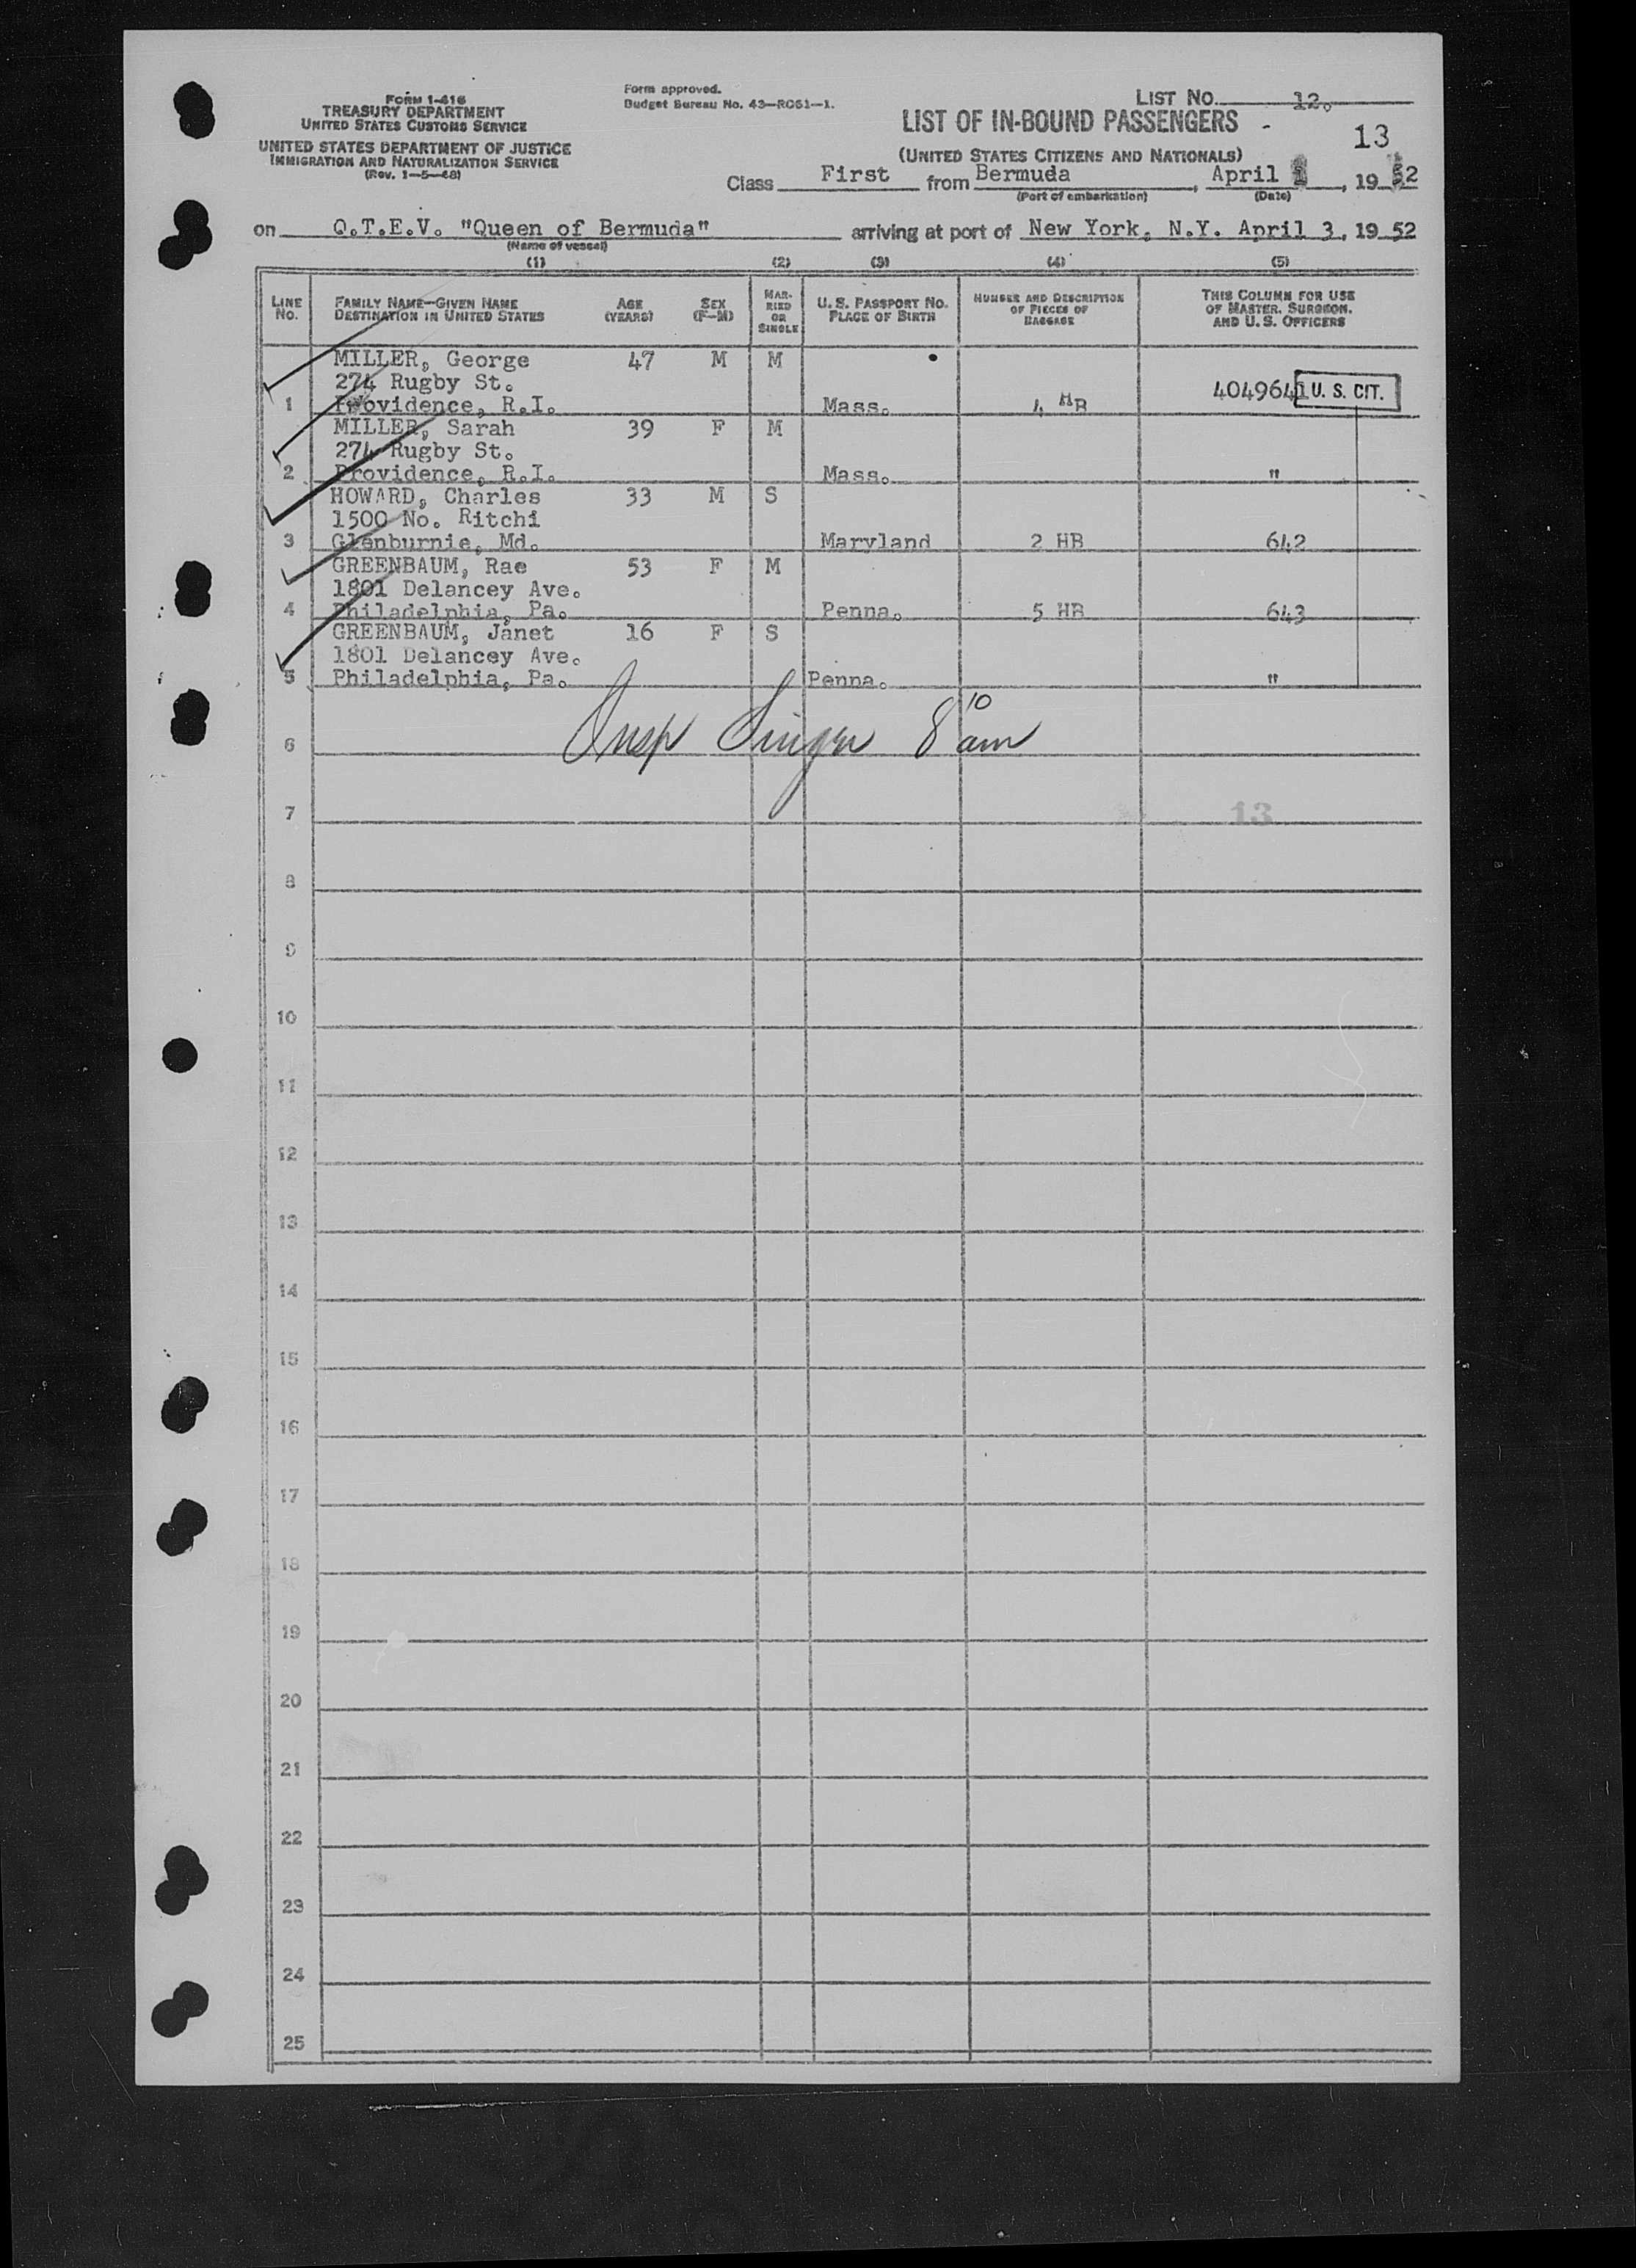 FORM I-416
TREASURY DEPARTMENT
UNITED STATES CUSTOMS SERVICE
UNITED STATES DEPARTMENT OF JUSTICE
IMMIGRATION AND NATURALIZATION SERVICE
(Rev. 1-5-48)
Form approved.
Budget Bureau No. 43-R061-1.
LIST NO. 12.
LIST OF IN-BOUND PASSENGERS
13
(UNITED STATES CITIZENS AND NATIONALS)
Class First from Bermuda, April , 1952
(Port of embarkation) (Date)
on Q.T.E.V. "Queen of Bermuda" arriving at port of New York, N.Y. April 3, 1952
(Name of vessel)
(1) (2) (3) (4) (5)
LINE No. FAMILY NAME-GIVEN NAME DESTINATION IN UNITED STATES AGE (YEARS) SEX (F-M) MARRIED OR SINGLE U. S. PASSPORT NO. PLACE OF BIRTH NUMBER AND DESCRIPTION OF PIECES OF BAGGAGE THIS COLUMN FOR USE OF MASTER, SURGEON, AND U. S. OFFICERS
MILLER, George 47 M M
274 Rugby St. 4049641 U. S. CIT.
1 Providence, R.I. Mass. 4 HB
MILLER, Sarah 39 F M
274 Rugby St.
2 Providence, R.I. Mass. "
HOWARD, Charles 33 M S
1500 No. Ritchi
3 Glenburnie, Md. Maryland 2 HB 642
GREENBAUM, Rae 53 F M
1801 Delancey Ave.
4 Philadelphia, Pa. Penna. 5 HB 643
GREENBAUM, Janet 16 F S
1801 Delancey Ave.
5 Philadelphia, Pa. Penna. "
Insp Singer 8 10 am
6
7 13
8
9
10
11
12
13
14
15
16
17
18
19
20
21
22
23
24
25